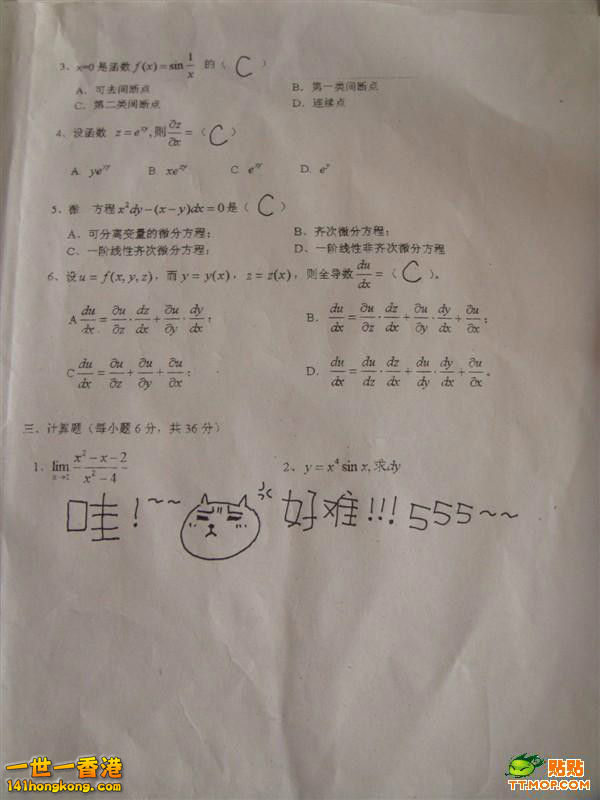 3、x=0 是函数 f(x) = sin 1/x 的（ C ）
A、可去间断点 B、第一类间断点
C、第二类间断点 D、连续点
4、设函数 z = e^{xy}, 则 ∂z/∂x =（ C ）
A. ye^{xy} B. xe^{xy} C. e^{xy} D. e^y
5、微 方程 x²dy−(x−y)dx = 0 是（ C ）
A、可分离变量的微分方程; B、齐次微分方程;
C、一阶线性齐次微分方程; D、一阶线性非齐次微分方程
6、设 u = f(x, y, z), 而 y = y(x), z = z(x), 则全导数 du/dx =（ C ）。
A du/dx = ∂u/∂z · dz/dx + ∂u/∂y · dy/dx; B. du/dx = ∂u/∂z · dz/dx + ∂u/∂y · dy/dx + ∂u/∂x;
C du/dx = ∂u/∂z + ∂u/∂y + ∂u/∂x; D. du/dx = du/dz · dz/dx + du/dy · dy/dx + ∂u/∂x。
三、计算题（每小题 6 分，共 36 分）
1、lim x→2 (x² − x − 2)/(x² − 4) 2、y = x⁴ sin x, 求dy
哇!~~ 好难!!! 555~~
一世一香港 贴贴
141hongkong.com TT.MOP.COM